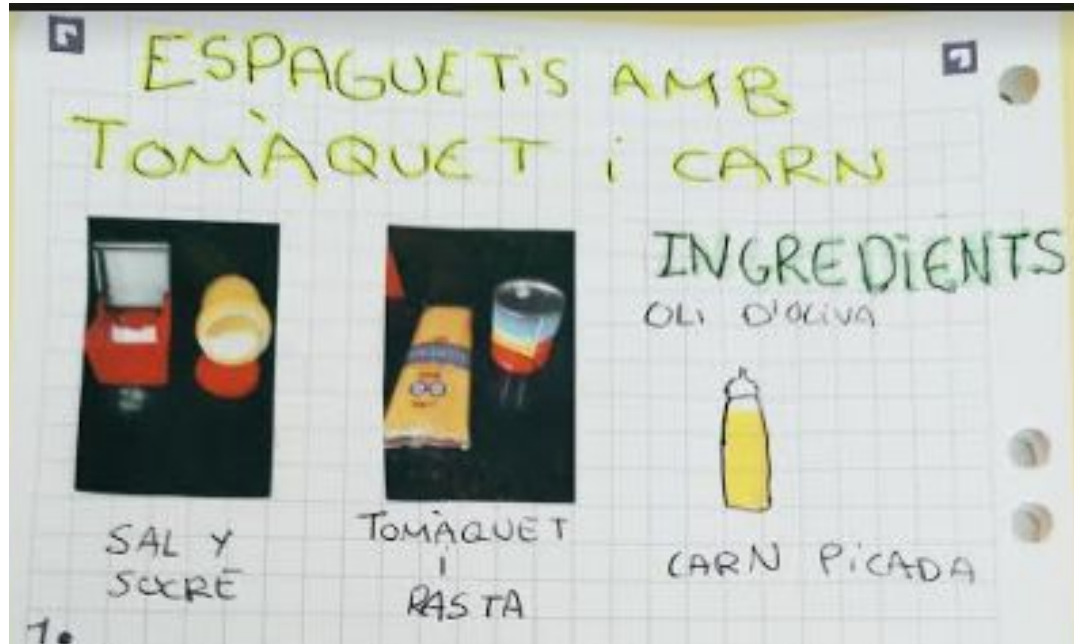 ESPAGUETIS AMB
TOMÀQUET i CARN
INGREDIENTS
OLI D'OLIVA
SAL Y
SUCRE
TOMÀQUET
i
PASTA
CARN PICADA
1.